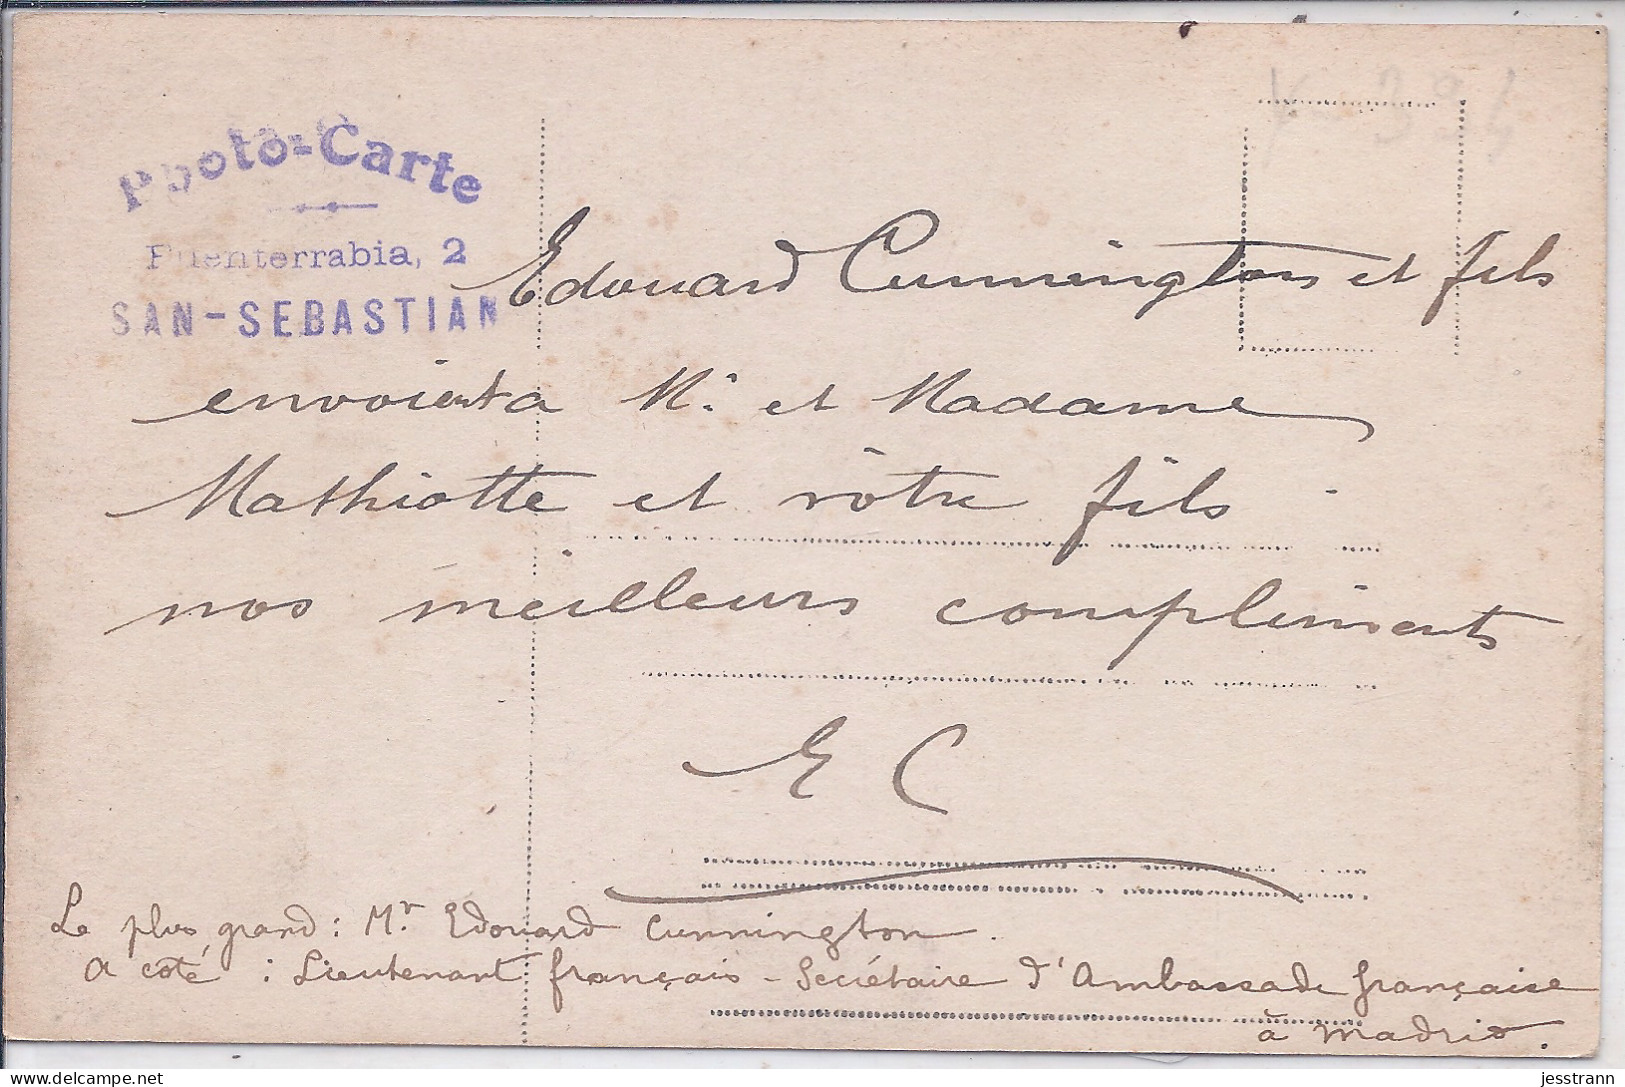 Photo-Carte
Fuenterrabia, 2
SAN-SEBASTIAN
Edouard Cunnington et fils
envoient a Mr et Madame
Mathiotte et vôtre fils
nos meilleurs compliments
E C
Le plus grand : Mr Edouard Cunnington.
A côté : Lieutenant français - Secrétaire d'Ambassade française
à Madrid.
jesstrann